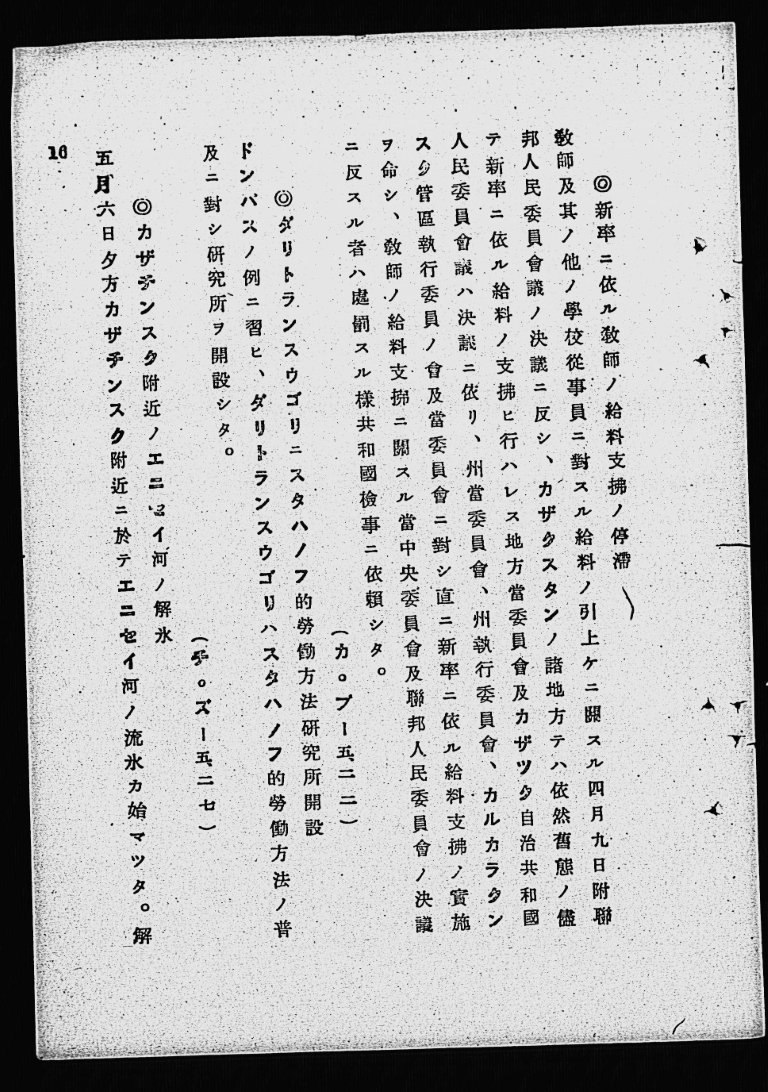 ◎新率ニ依ル敎師ノ給料支拂ノ停滯
敎師及其ノ他ノ學校從事員ニ對スル給料ノ引上ケニ關スル四月九日附聯
邦人民委員會議ノ決議ニ反シ、カザクスタンノ諸地方テハ依然舊態ノ儘
テ新率ニ依ル給料ノ支拂ヒ行ハレス地方當委員會及カザツク自治共和國
人民委員會議ハ決議ニ依リ、州當委員會、州執行委員會、カルカラクン
スク管區執行委員ノ會及當委員會ニ對シ直ニ新率ニ依ル給料支拂ノ實施
ヲ命シ、敎師ノ給料支拂ニ關スル當中央委員會及聯邦人民委員會ノ決議
ニ反スル者ハ處罰スル樣共和國檢事ニ依賴シタ。
(カ。プー五、二二)
◎ダリトランスウゴリニスタハノフ的勞働方法硏究所開設
ドンバスノ例ニ習ヒ、ダリトランスウゴリハスタハノフ的勞働方法ノ普
及ニ對シ硏究所ヲ開設シタ。
(チ。ズー五、二七)
◎カザチンスク附近ノエニセイ河ノ解氷
五月六日夕方カザチンスク附近ニ於テエニセイ河ノ流氷カ始マツタ。解
16